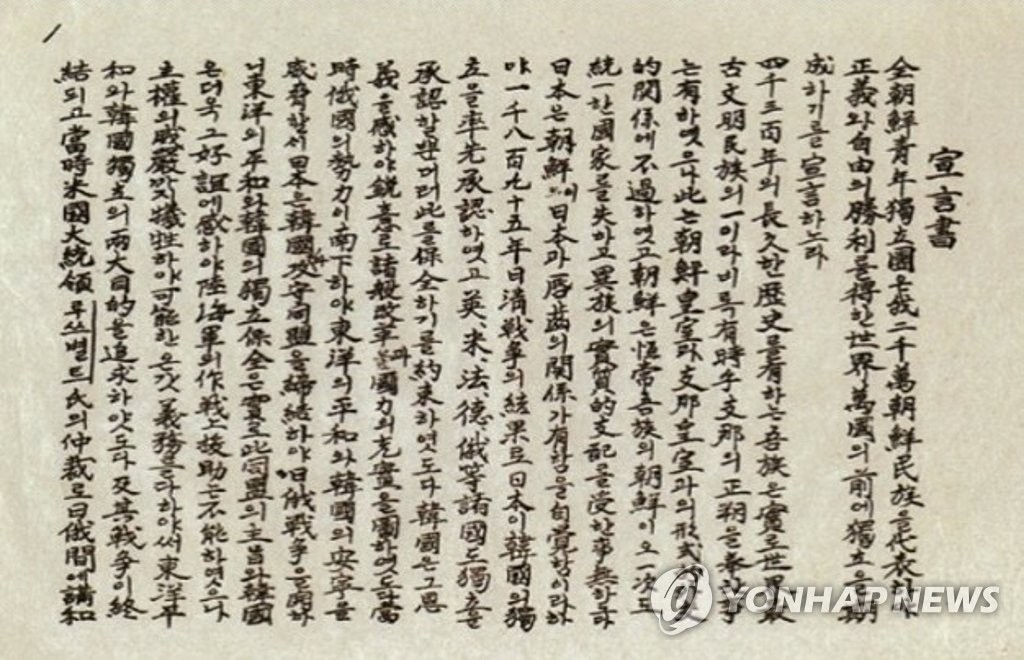 宣言書
全朝鮮青年獨立團은我二千萬朝鮮民族을代表하야
正義와自由의勝利를得한世界萬國의前에獨立을期
成하기를宣言하노라
四千三百年의長久한歷史를有하는吾族은實로世界最
古文明民族의一이라비록有時乎支那의正朔을奉한事
는有하엿으나此는朝鮮皇室과支那皇室과의形式的外交
的關係에不過하엿고朝鮮은恒常吾族의朝鮮이오一次도
統一한國家를失하고異族의實質的支配를受한事無하다
日本은朝鮮이日本과唇齒의關係가有함을自覺함이라하
야一千八百九十五年日清戰爭의結果로日本이韓國의獨
立을率先承認하엿고英、米、法、德、俄等諸國도獨立을
承認할뿐더러此를保全하기를約束하엿도다韓國은그恩
義를感하야銳意로諸般改革과國力의充實을圖하엿도다當
時俄國의勢力이南下하야東洋의平和와韓國의安寧을
威脅할새日本은韓國과攻守同盟을締結하야日俄戰爭을開하
니東洋의平和와韓國의獨立保全은實로此同盟의主旨와韓國
은더욱그好誼에感하야陸海軍의作戰上援助는不能하엿으나
主權의威嚴까지犧牲하야可能한온갓義務를다하야써東洋平
和와韓國獨立의兩大目的을追求하얏도다及其戰爭이終
結되고當時米國大統領루쓰벨트氏의仲裁로日俄間에講和
YONHAP NEWS